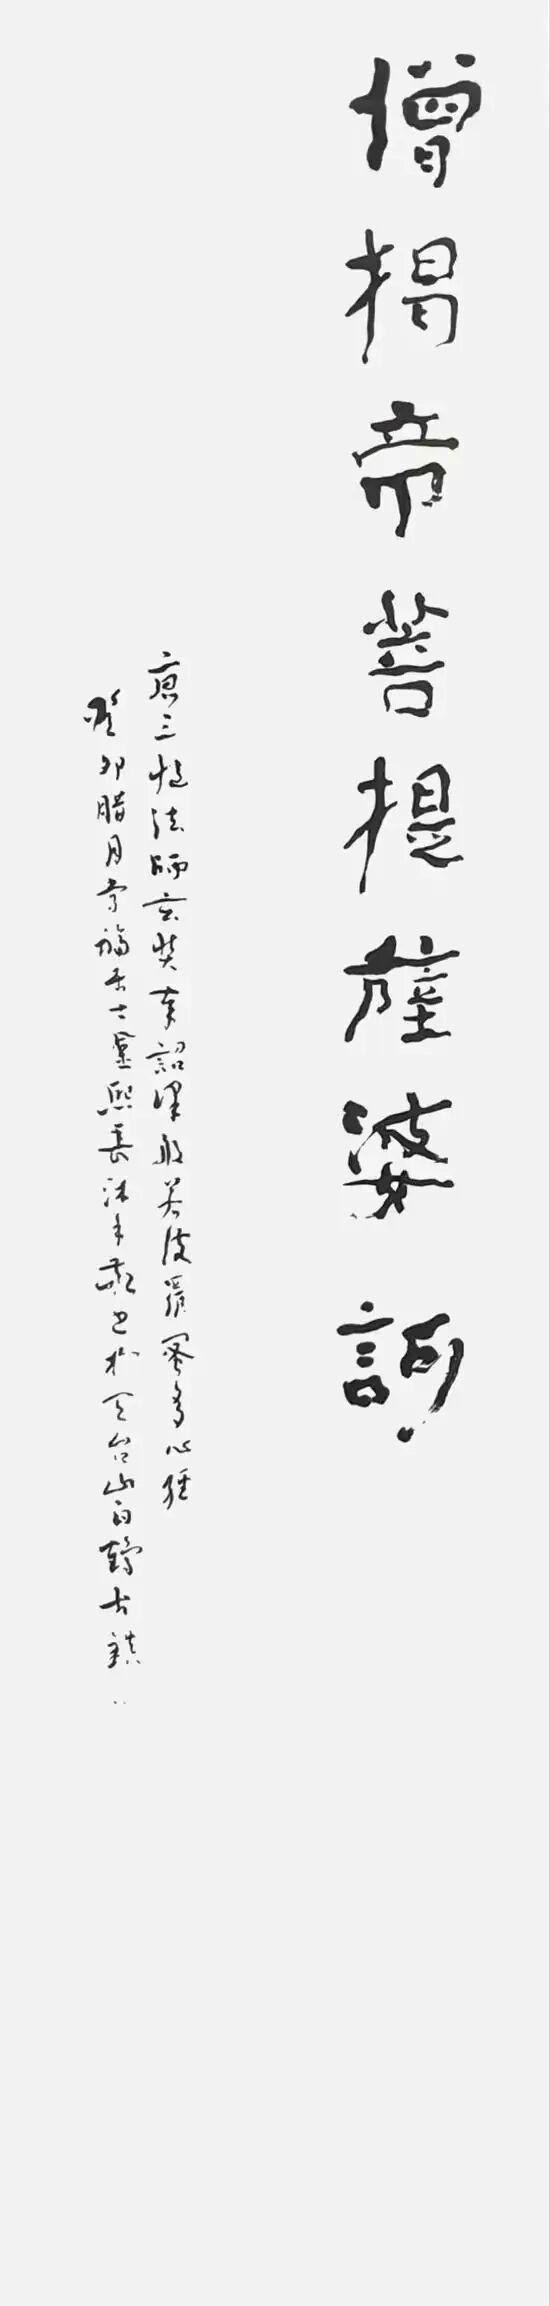 僧揭帝菩提薩婆訶
唐三藏法師玄奘奉詔譯般若波羅蜜多心經
癸卯腊月 福居士 熙長沐手敬书於天台山白鶴古鎮